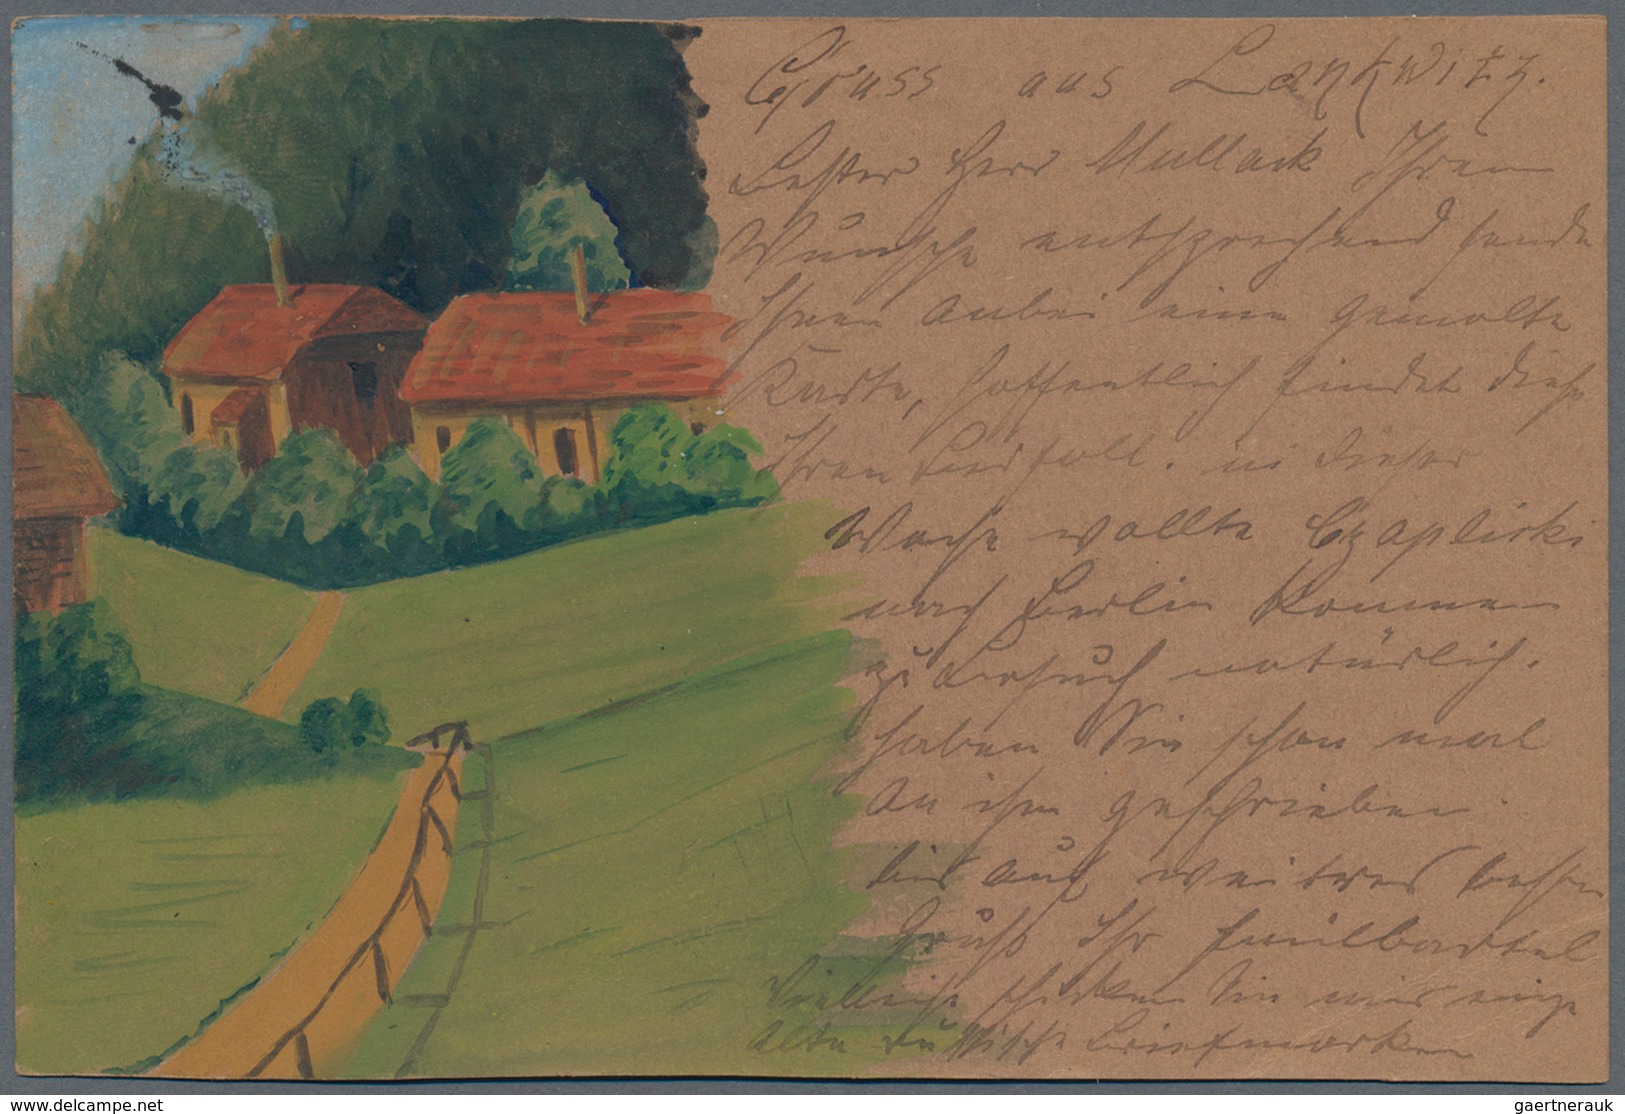 Gruss aus Lankwitz.
Bester Herr Mullack Ihrem
Wunsche entsprechend sende
Ihnen anbei eine gemalte
Karte, hoffentlich findet diese
Ihren Beifall. in dieser
Woche wollte Czaplicki
nach Berlin kommen
zu Besuch natürlich.
haben Sie schon mal
an ihn geschrieben
bis auf weitres besten
Gruß Ihr
Vielleicht schicken Sie mir einige
alte russische Briefmarken
delcampe.net
gaertnerauk